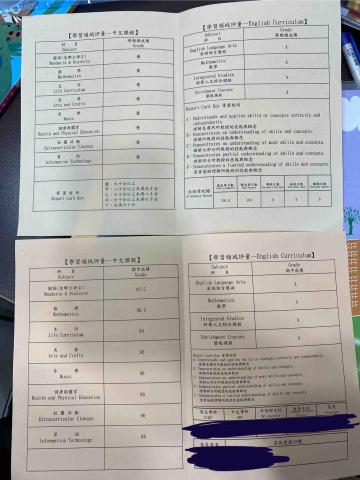 【學習領域評量—中文課程】
科 目 學期總成績
Subject Grade
國語(含鄉土語文) 優
Mandarin & Dialects
數 學 優
Mathematics
生 活 優
Life Curriculum
美 勞 優
Arts and Crafts
音 樂 優
Music
健康與體育 優
Health and Physical Education
社 團 活 動 優
Extracurricular Classes
資 訊 優
Information Technology
等 第 說 明
Report Card Key
優：九十分以上
甲：八十分以上未滿九十分
乙：七十分以上未滿八十分
丙：六十分以上未滿七十分
丁：未滿六十分
【學習領域評量—English Curriculum】
Subject Grade
科 目 學期總成績
English Language Arts A
英語語言藝術
Mathematics A
數學
Integrated Studies A
科學人文綜合課程
Enrichment Courses A
藝能課程
Report Card Key 等第說明
A : Understands and applies skills or concepts correctly and
independently.
B : Demonstrates an understanding of skills and concepts.
C : Demonstrates an understanding of most skills and concepts.
D : Demonstrates partial understanding of skills and concepts.
E : Demonstrates a limited understanding of skills and concepts.
【學習領域評量—中文課程】
科 目 期中成績
Subject Grade
國語(含鄉土語文) 97.5
Mandarin & Dialects
數 學 98.5
Mathematics
生 活 99
Life Curriculum
美 勞 92
Arts and Crafts
音 樂 96
Music
健康與體育 96
Health and Physical Education
社 團 活 動 96
Extracurricular Classes
資 訊 98
Information Technology
【學習領域評量—English Curriculum】
Subject Grade
科 目 期中成績
English Language Arts A
英語語言藝術
Mathematics A
數學
Integrated Studies A
科學人文綜合課程
Enrichment Courses A
藝能課程
Report Card Key 等第說明
A : Understands and applies skills or concepts correctly and independently.
B : Demonstrates an understanding of skills and concepts.
C : Demonstrates an understanding of most skills and concepts.
D : Demonstrates partial understanding of skills and concepts.
E : Demonstrates a limited understanding of skills and concepts.